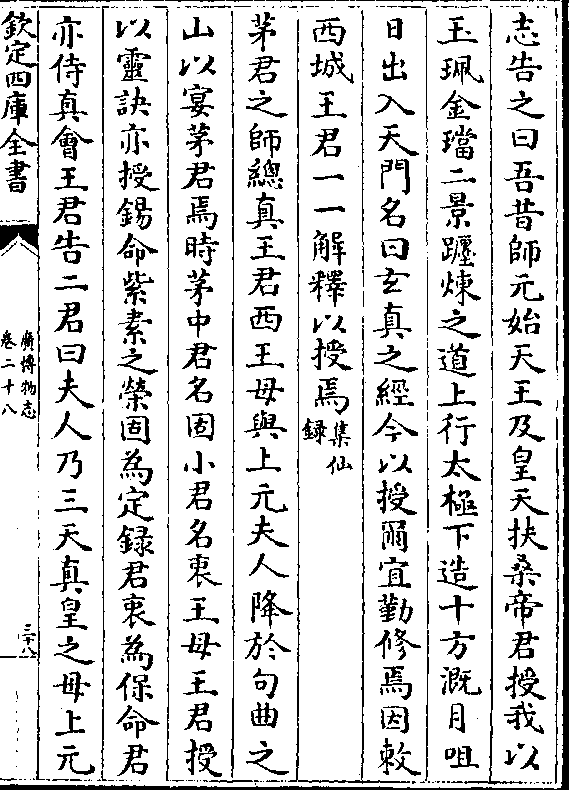 志告之曰吾昔師元始天王及皇天扶桑帝君授我以
玉珮金璫二景躔煉之道上行太極下造十方溉月咀
日出入天門名曰玄真之經今以授爾宜勤修焉因敕
西城王君一一解釋以授焉集仙録
茅君之師總真王君西王母與上元夫人降於句曲之
山以宴茅君焉時茅中君名固小君名衷王母王君授
以靈訣亦授錫命紫素之榮固為定録君衷為保命君
亦侍真會王君告二君曰夫人乃三天真皇之母上元
欽定四庫全書
廣博物志
卷二十八
三十八